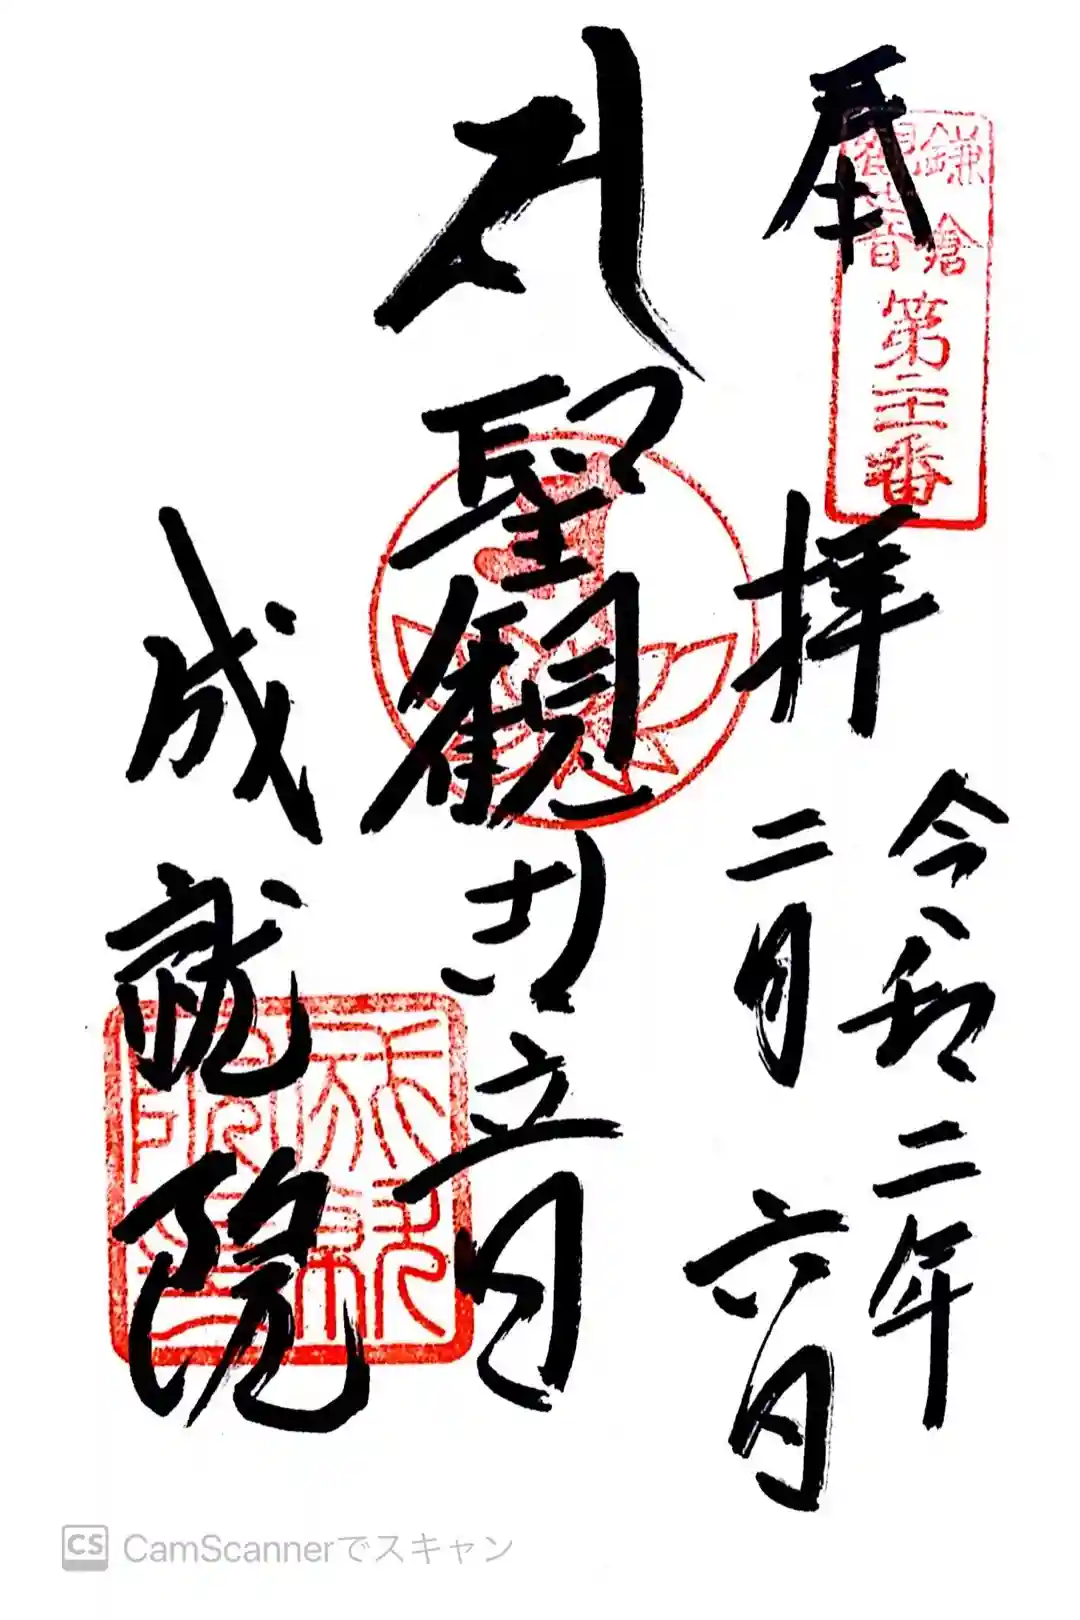 奉拝
鎌倉
観音
第二十一番
令和二年
二月六日
聖観世音
成就院
CS CamScannerでスキャン